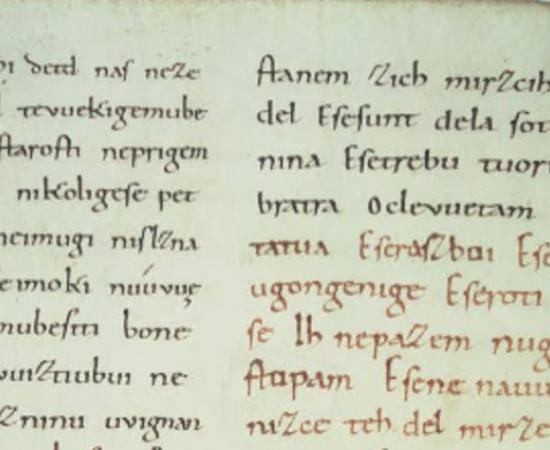 detd naſ neze
tevuekigemube
ſtaroſti neprigem
nikoligeſe pet
neimugi niſlzna
eimoki nuúvuę
mubeſiti bone
vuiztiubui ne
zninu uvignan
ſtanem zich mirzcih
del Eſeſunt dela ſot
nina Eſetrebu tuor
bratra Oclevuetam
tatua Eſeraſzboi Eſe
ugongenige Eſeroti
ſe Ih nepazem nug
ſtopam Eſene nauu
nizce teh del mirze